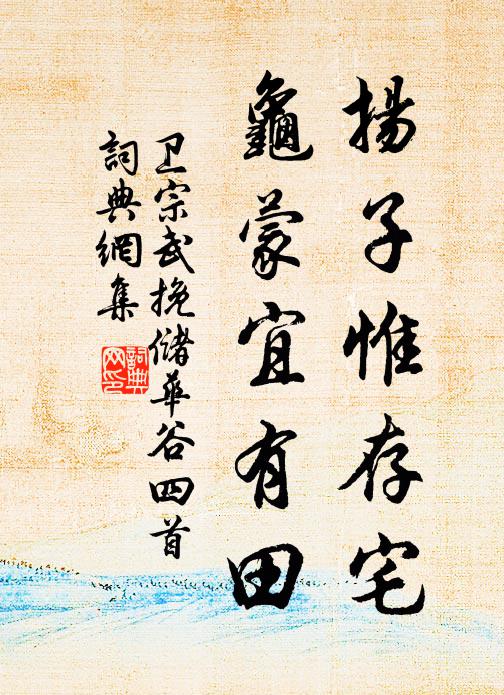 揚子惟存宅
龜蒙宜有田
卫宗武挽儲華谷四首
詞典網集
詞典
网印